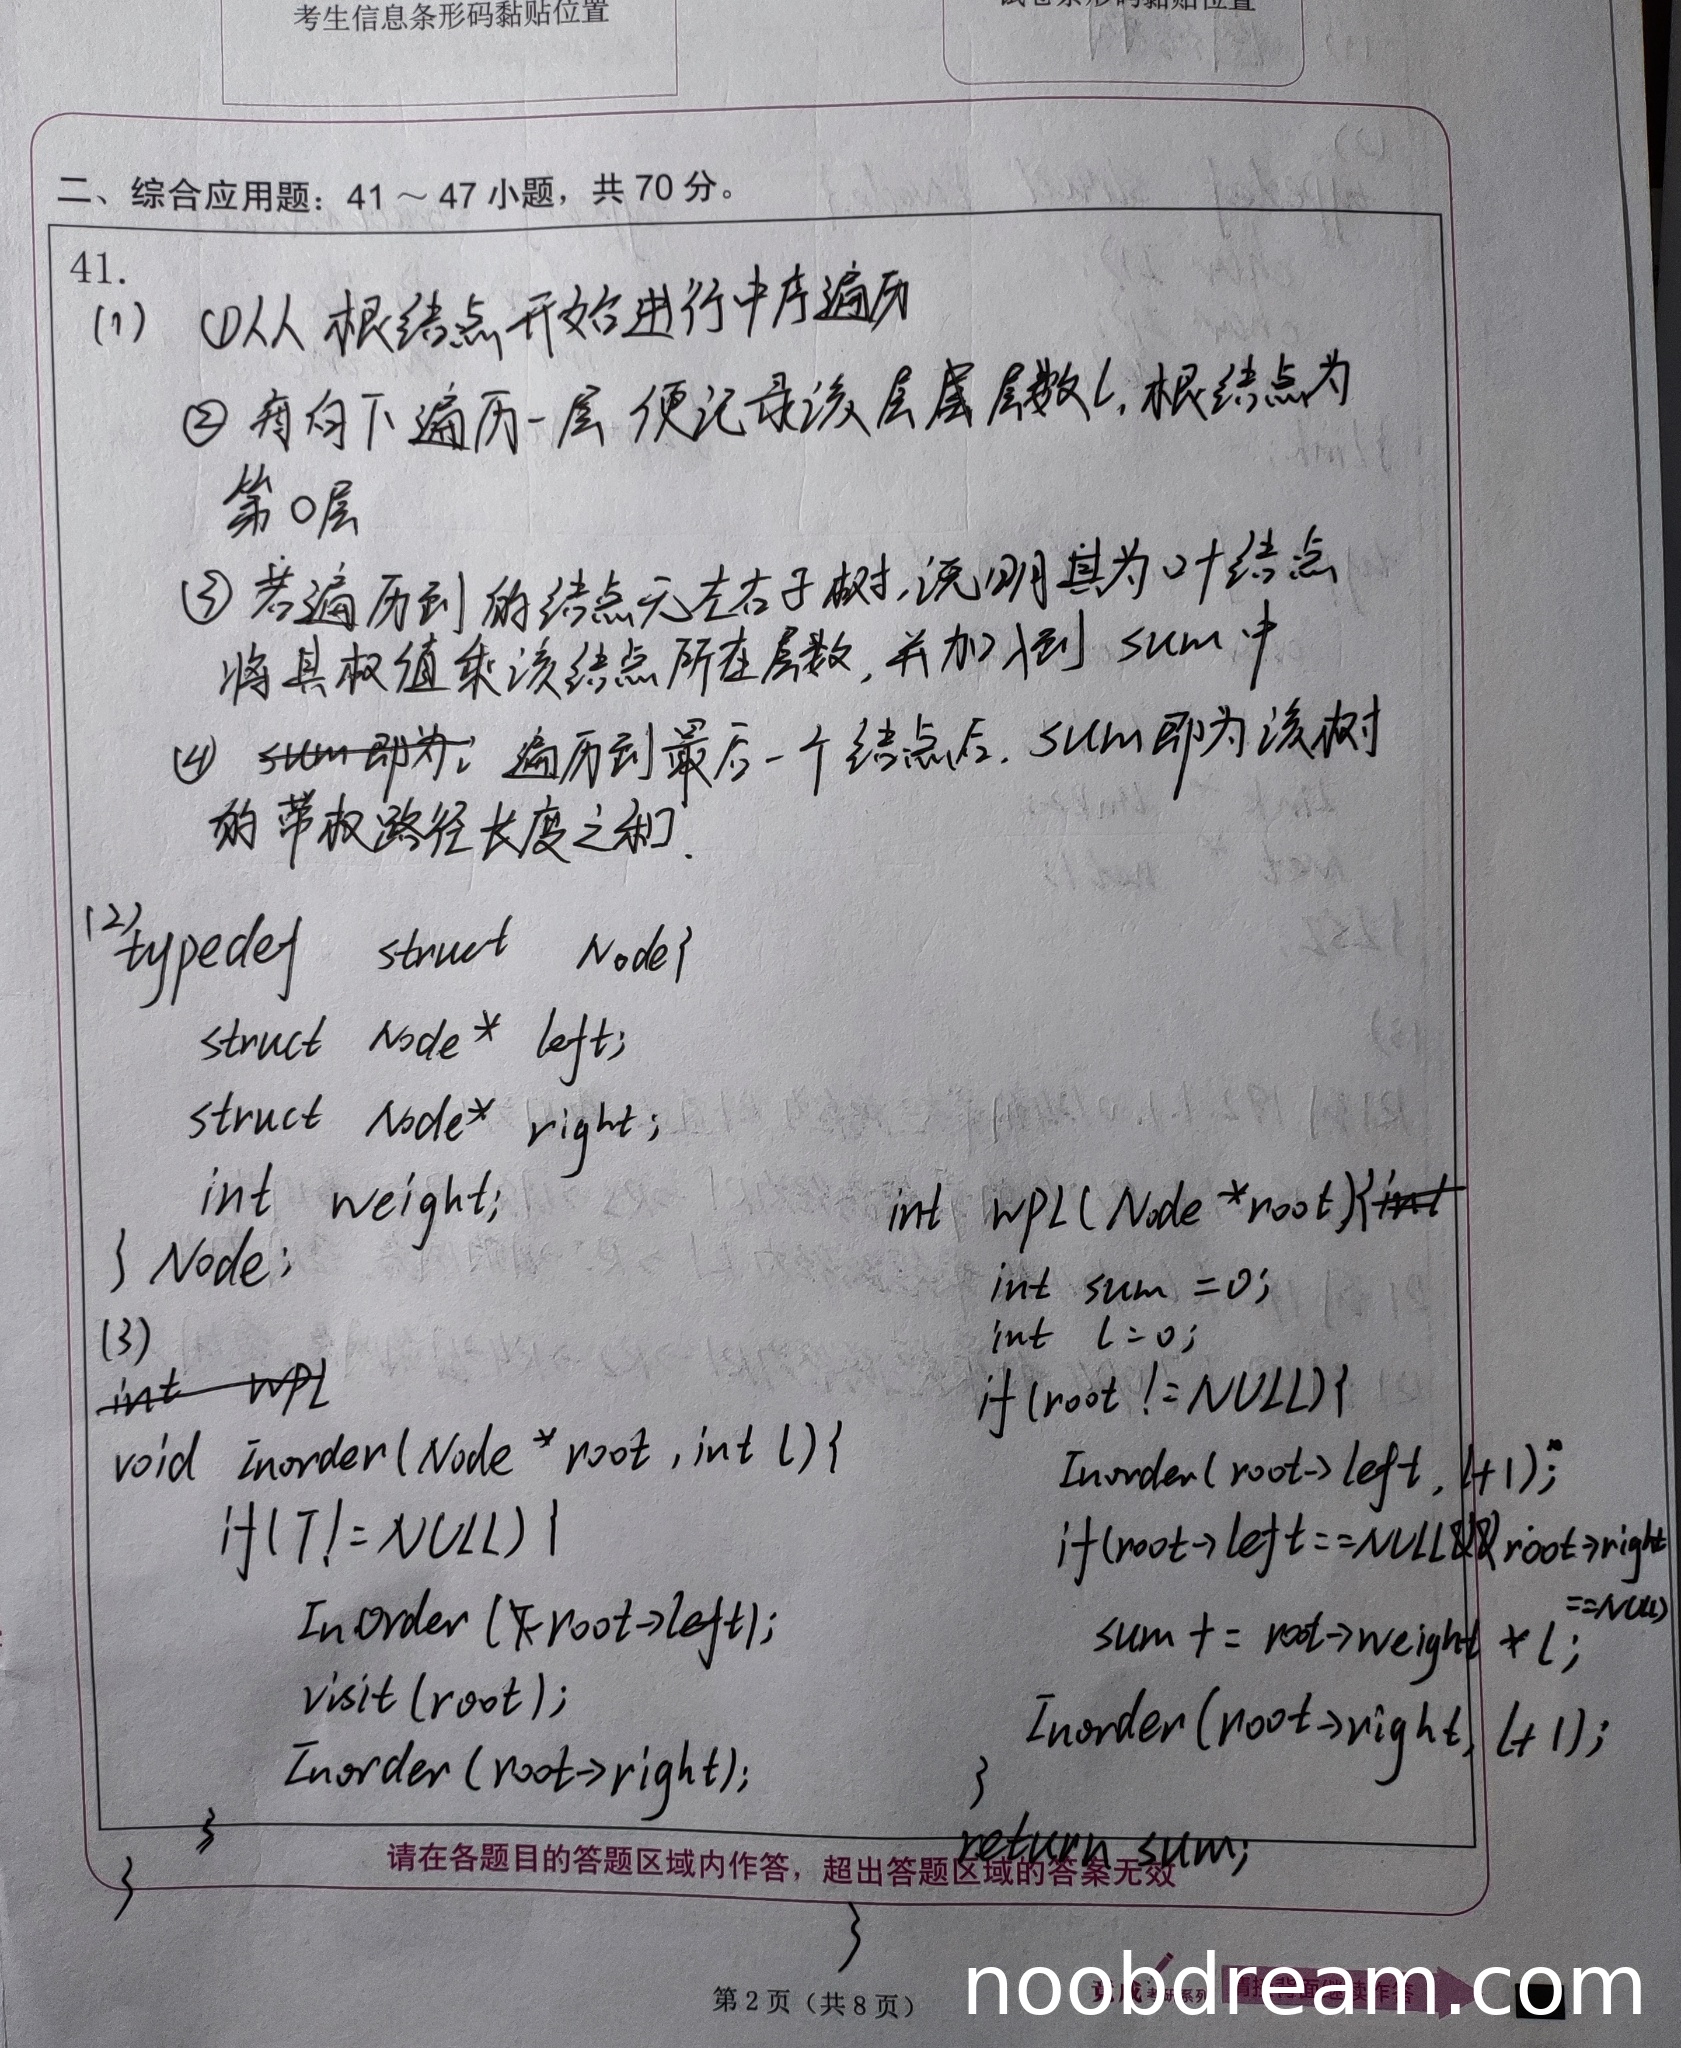 考生信息条形码黏贴位置
试卷条形码黏贴位置
二、综合应用题：41～47小题，共70分。
41.
(1) ①从根结点开始进行中序遍历
② 每向下遍历一层 便记录该层层层数l，根结点为
第0层
③ 若遍历到的结点无左右子树，说明其为叶结点
将其权值乘该结点所在层数，并加入到 sum中
④ sum即为： 遍历到最后一个结点后. sum即为该树
的带权路径长度之和.
(2)
typedef struct Node{
struct Node* left;
struct Node* right;
int weight;
} Node;
(3)
int WPL
void Inorder(Node *root, int l){
if(T!=NULL){
InOrder(root->left);
visit(root);
Inorder(root->right);
}
}
int WPL(Node *root){int
int sum =0;
int l=0;
if(root !=NULL){
Inorder(root->left, l+1);
if(root->left==NULL&&root->right
==NULL)
sum += root->weight * l;
Inorder(root->right, l+1);
}
return sum;
}
请在各题目的答题区域内作答，超出答题区域的答案无效
第2页（共8页）
竞成 考研系列
请接背面继续作答
noobdream.com